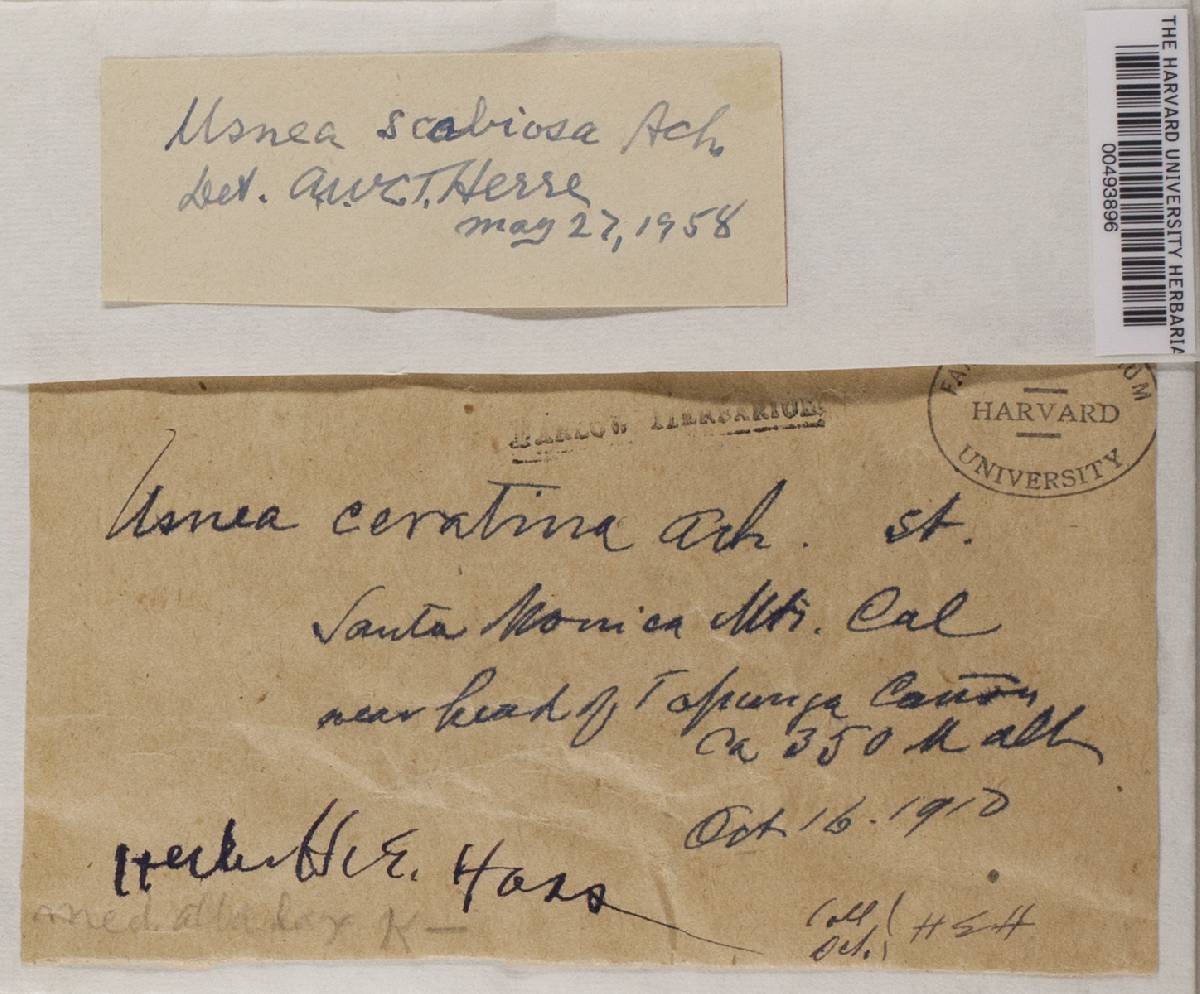 Usnea scabiosa Ach.
Det. A.W.C.T. Herre
May 27, 1958
THE HARVARD UNIVERSITY HERBARIA
00493896
FARLOW HERBARIUM
HARVARD
UNIVERSITY
Usnea ceratina Ach. st.
Santa Monica Mts. Cal
near head of Topunga Cañon
Ca 350 M alt
Oct 16. 1910
H. E. Hass
med. alba lax K–
Coll! HEH
Det.!